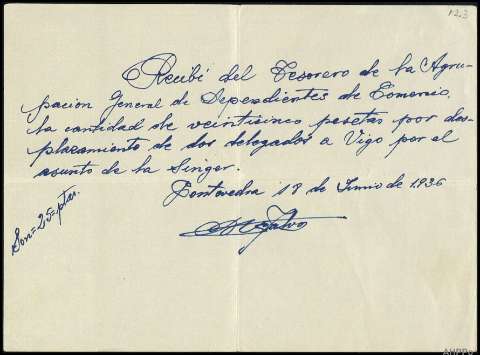 123
Recibí del Tesorero de la Agru-
pacion General de Dependientes de Comercio,
la cantidad de veinticinco pesetas por des-
plazamiento de dos delegados a Vigo por el
asunto de la Singer.
Pontevedra 18 de Junio de 1936
Son=25=ptas.
AHPPo